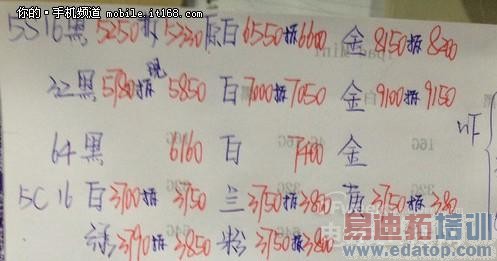 你的·手机频道 mobile.it168.com
5S16黑 5250拆 5330原 白 6550拆6600 金 8150拆8200
32黑 5780拆 5850 白 7000拆7050 金 9100拆9150
64黑 6160 白 7400 金
5C 16 白 3700拆 3750 兰 3750拆3800 3750拆380
绿 3790拆 3850 粉 3750拆3800
易迪拓培训
www.edatop.com